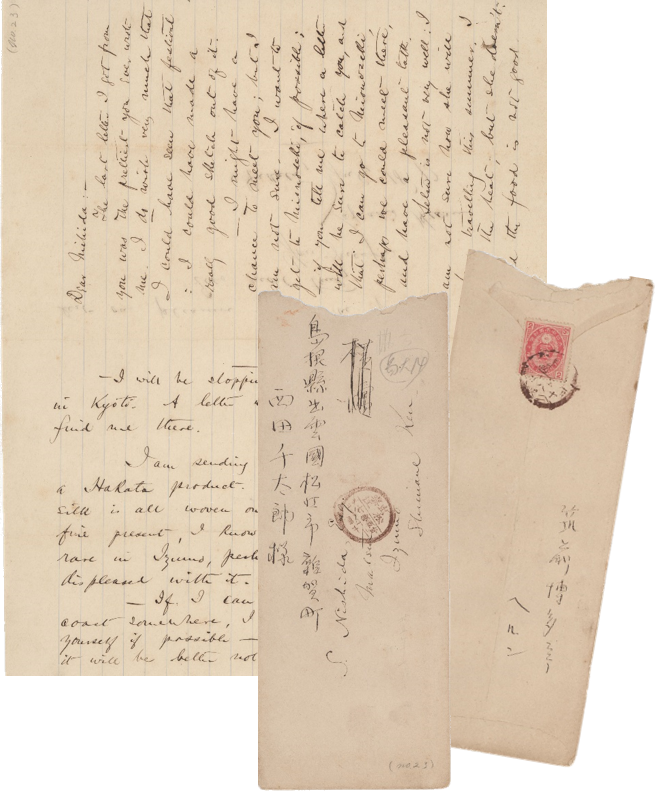 (no 23)
Dear Nishida:—
The last letter I got from
you was the prettiest you ever sent
me. I do wish very much that
I could have seen that festival
: I could have made a
really good sketch out of it.
— I might have a
chance to meet you; but I
am not sure. I want to
get to Mionoseki, if possible;
— if you tell me where a letter
will be sure to catch you, and
that I can go to Mionoseki
perhaps we could meet there,
and have a pleasant talk.
Setsu is not very well: I
am not sure how she will
travelling this summer. I
the heat; but she doesn't.
the food is not good
—I will be stoppin
in Kyōto. A letter
find me there.
I am sending
a Hakata product.
silk is all woven on
fine present, I know
rare in Izumo, perh
displeased with it.
—If I can
coast somewhere, I
yourself if possible—
it will be better not
島根縣出雲國松江市
西田千太郎様
S. Nishida
Matsu
Izumo
Shimane Ken
(no 23)
博多